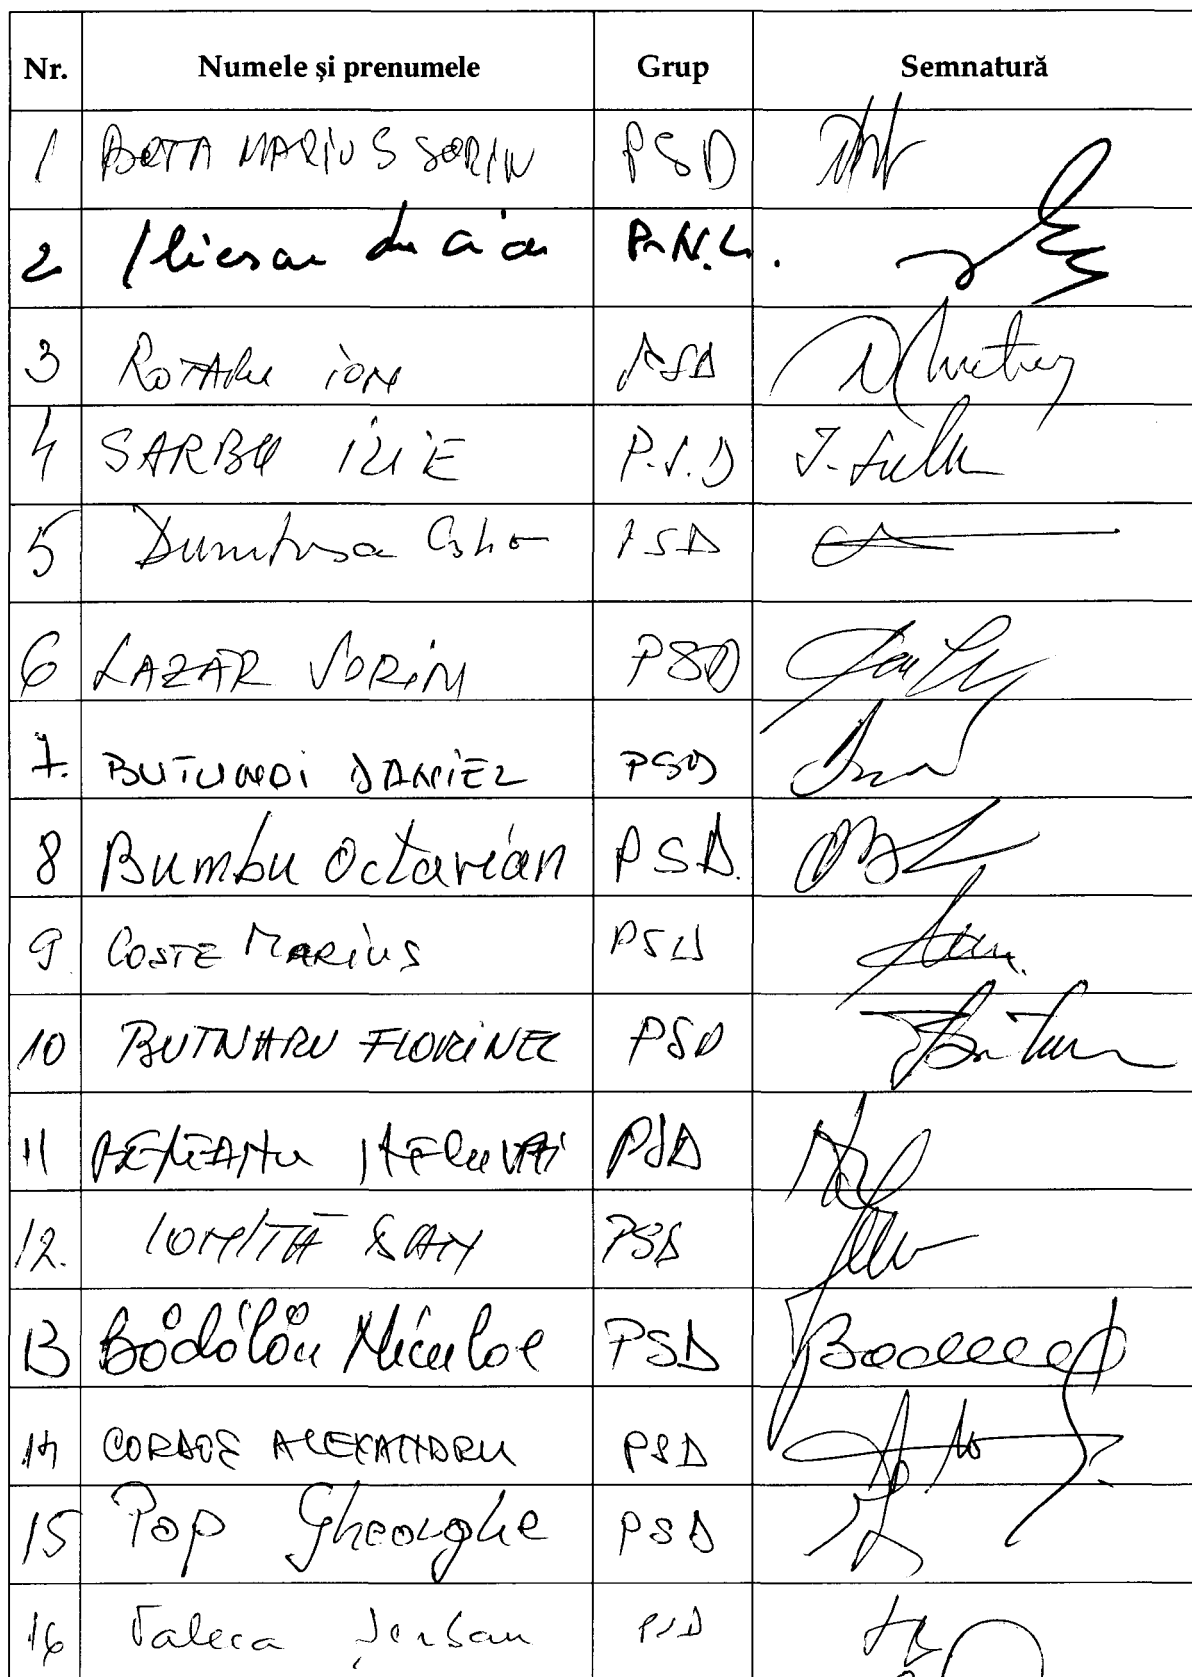 Nr. Numele și prenumele Grup Semnatură
1 BOTA MARIUS SORIN PSD
2 P.N.L.
3 ROTARU ION PSD
4 SARBU ILIE P.S.D
5 PSD
6 LAZĂR SORIN PSD
7. BUTUNOI DANIEL PSD
8 Bumbu Octavian PSD.
9 COSTE MARIUS PSD
10 BUTNARU FLORINEL PSD
11 PSD
12. IONIȚĂ DAN PSD
13 Bădălău Niculae PSD
14 CORDOȘ ALEXANDRU PSD
15 Pop Gheorghe PSD
16 Valeca Șerban PSD